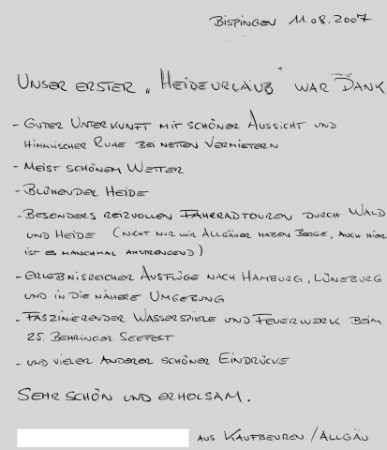 Bispingen 11.08.2007
Unser erster „Heideurlaub“ war Dank
- Guter Unterkunft mit schöner Aussicht und
Himmlischer Ruhe bei netten Vermietern
- Meist schönem Wetter
- Blühender Heide
- Besonders reizvollen Fahrradtouren durch Wald
und Heide (nicht nur wir Allgäuer haben Berge, auch hier
ist es manchmal anstrengend)
- Erlebnisreicher Ausflüge nach Hamburg, Lüneburg
und in die nähere Umgebung
- Faszinierender Wasserspiele und Feuerwerk beim
25. Behringer Seefest
- und vieler anderer schöner Eindrücke
Sehr schön und erholsam.
aus Kaufbeuren/Allgäu